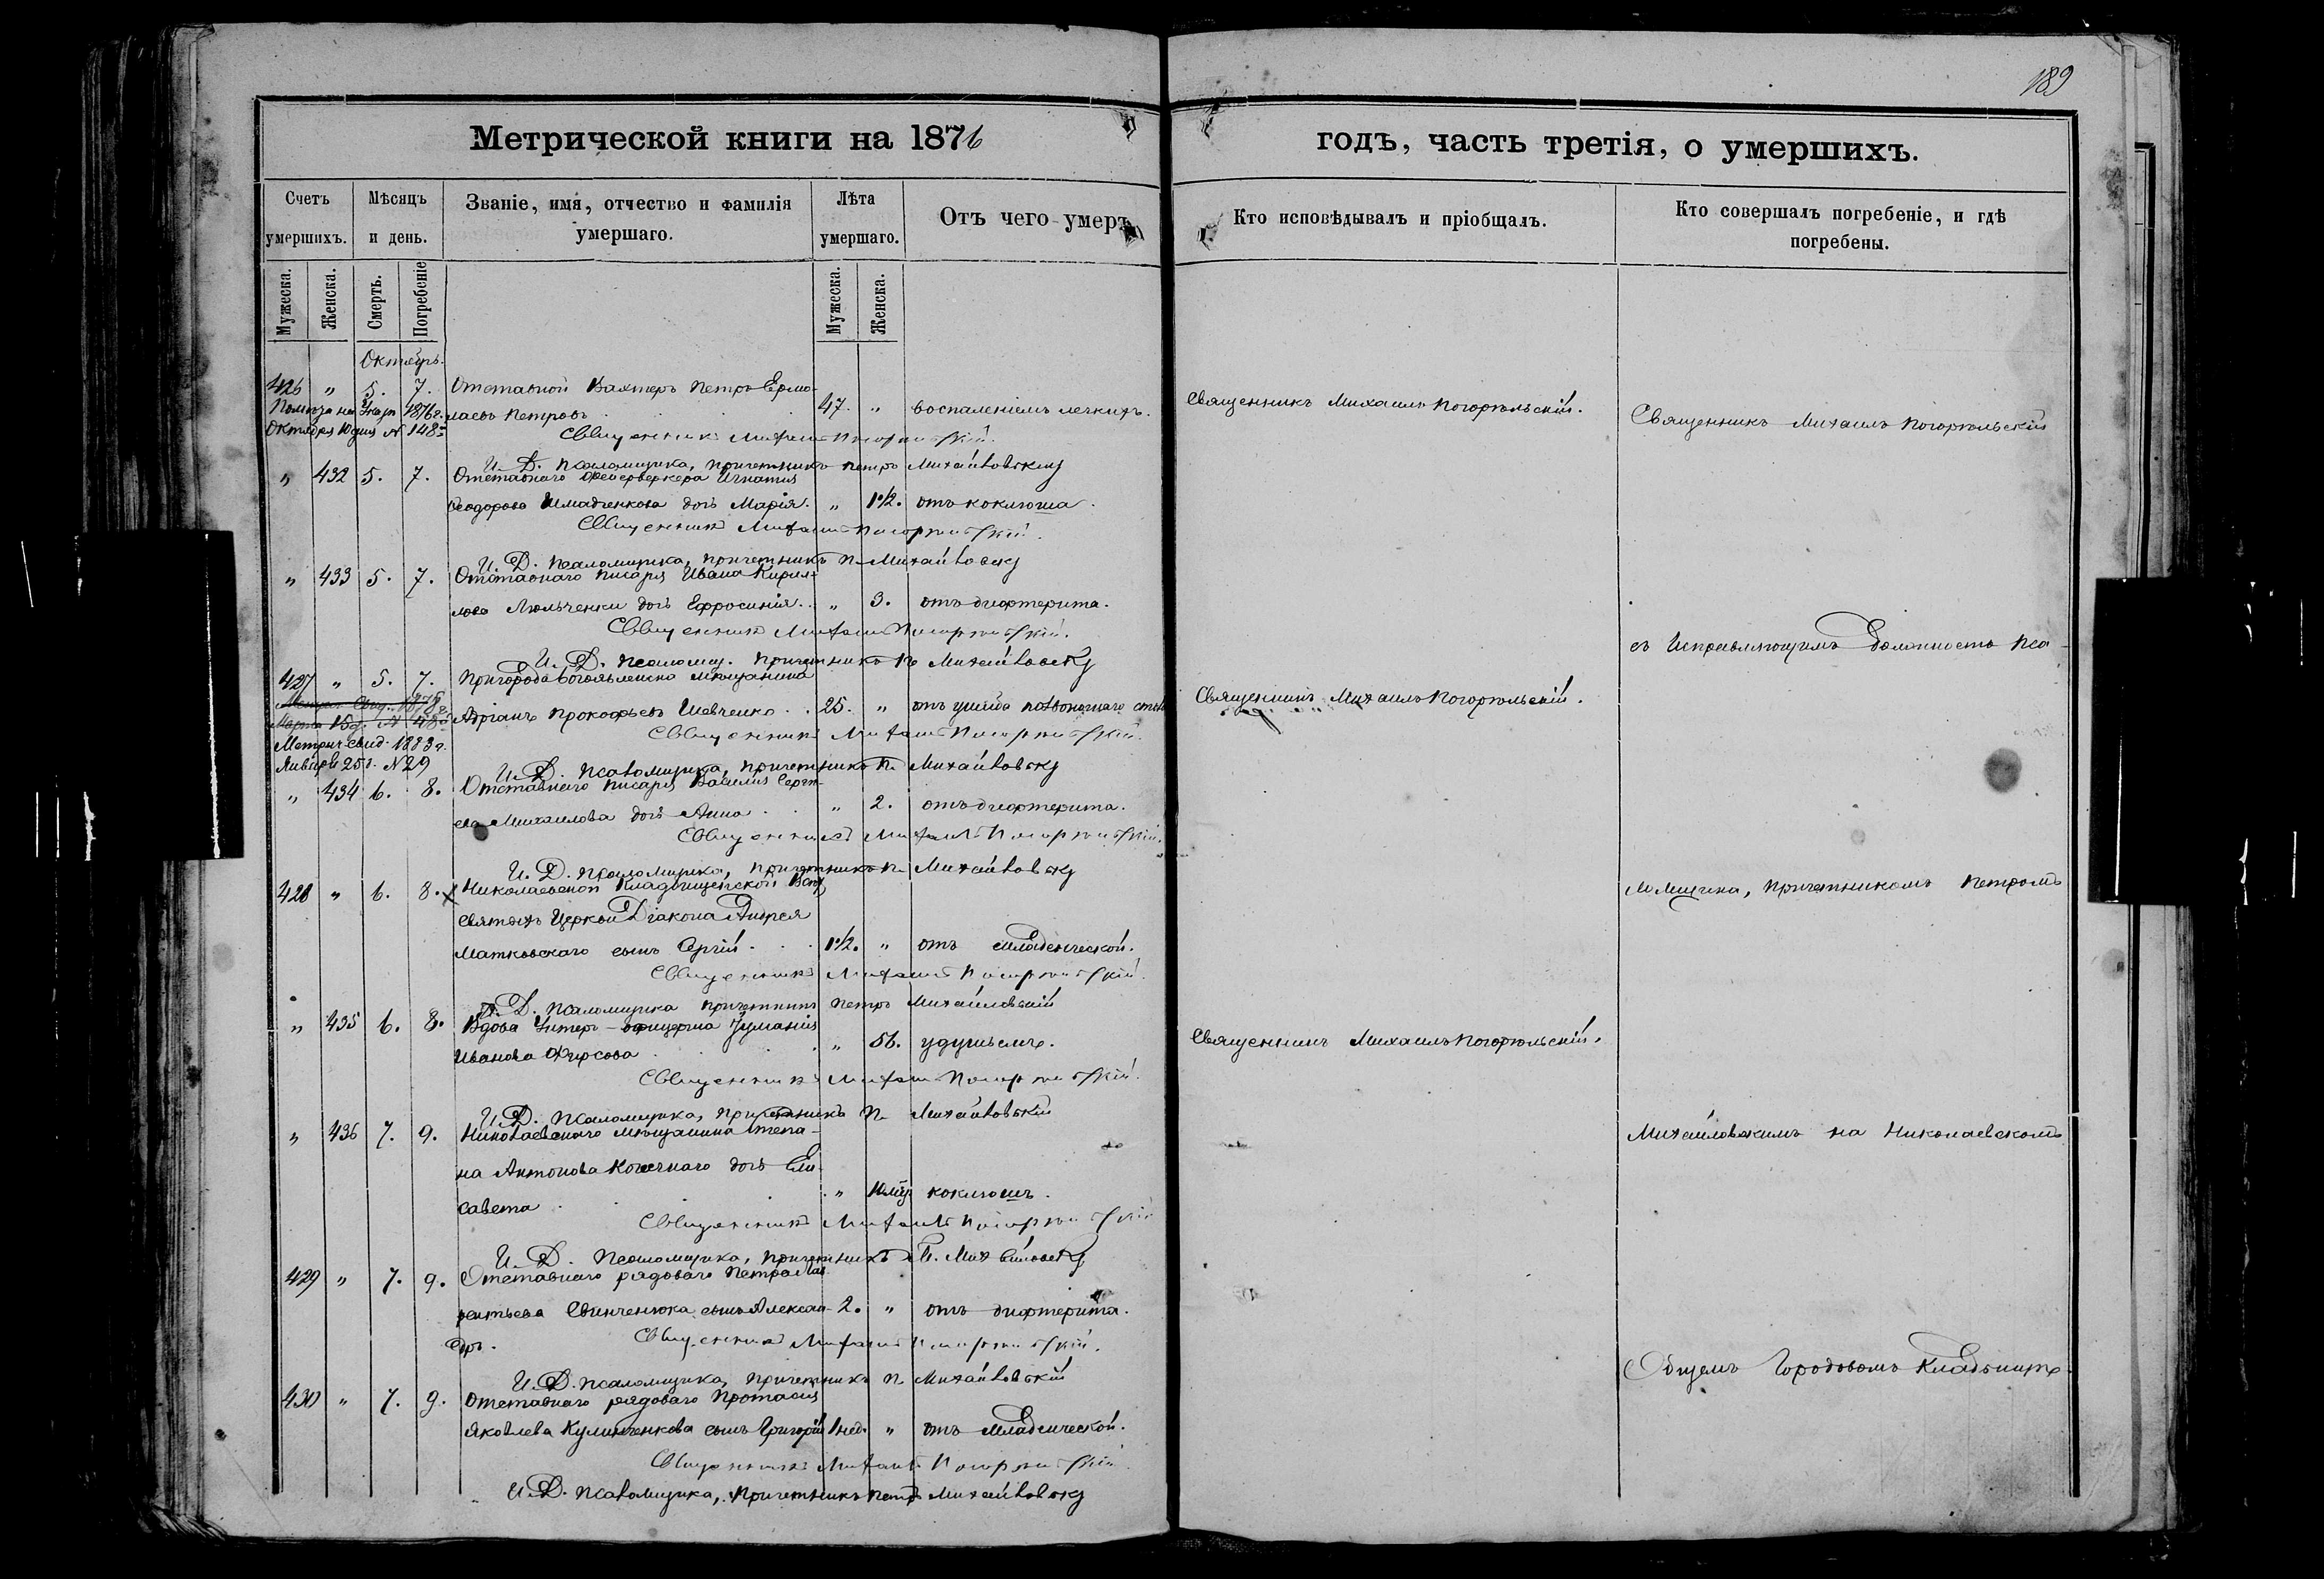 189
Метрической книги на 1876
годъ, часть третія, о умершихъ.
Счетъ умершихъ.
Мѣсяцъ и день.
Званіе, имя, отчество и фамилія умершаго.
Лѣта умершаго.
Отъ чего умеръ
Кто исповѣдывалъ и пріобщалъ.
Кто совершалъ погребеніе, и гдѣ погребены.
Мужеска. Женска. Смерть. Погребеніе Мужеска. Женска.
Октябрь.
426 " 5. 7. Отставной Вахтеръ Петръ Ермо-
лаевъ Петровъ 47. " воспаленіемъ легкихъ.
1876 г.
Октября 10 дня № 148
Священникъ Михаилъ Погорѣльскій.
Священникъ Михаилъ Погорѣльскій
Священникъ Михаилъ Погорѣльскій.
И. Д. Псаломщика, причетникъ Петръ Михайловскій
" 432 5. 7. Отставнаго Фейерверкера Игнатія
Ѳеодорова дочь Марія. " 1½. отъ коклюша.
Священникъ Михаилъ Погорѣльскій.
И. Д. Псаломщика, причетникъ П. Михайловскій
" 433 5. 7. Отставнаго писаря Ивана Кирил-
лова Люльченки дочь Ефросинія. " 3. отъ дифтерита.
Священникъ Михаилъ Погорѣльскій.
съ Исправляющимъ Должность Пса-
И. Д. Псаломщ. причетникъ П. Михайловскій
427 " 5. 7. Пригорода Богоявленска мѣщанинъ
Адріанъ Прокофьевъ Шевченко 25. " отъ ушиба позвоночнаго
Священникъ Михаилъ Погорѣльскій.
Марта 15 д. № 48
Метрич. свид. 1883 г.
Января 25 д. № 29
Священникъ Михаилъ Погорѣльскій.
И. Д. Псаломщика, причетникъ П. Михайловскій
" 434 6. 8. Отставнаго писаря Василія Сергѣ-
ева Михаилова дочь Анна " 2. отъ дифтерита.
Священникъ Михаилъ Погорѣльскій.
И. Д. Псаломщика, причетникъ П. Михайловскій
428 " 6. 8. Николаевской Кладбищенской Всѣхъ
Святыхъ Церкви Діакона Андрея
Матковскаго сынъ Сергій 1½. " отъ младенческой.
ломщика, причетникомъ Петромъ
Священникъ Михаилъ Погорѣльскій.
И. Д. Псаломщика причетникъ Петръ Михайловскій
" 435 6. 8. Вдова Унтеръ-офицерша
Иванова Фирсова " 56. удушьемъ.
Священникъ Михаилъ Погорѣльскій.
Священникъ Михаилъ Погорѣльскій.
И. Д. Псаломщика, причетникъ П. Михайловскій
" 436 7. 9. Николаевскаго мѣщанина Степа-
на Антонова дочь Ели-
савета " коклюшъ.
Михайловскимъ на Николаевскомъ
Священникъ Михаилъ Погорѣльскій
И. Д. Псаломщика, причетникъ П. Михайловскій
429 " 7. 9. Отставнаго рядоваго Петра Лав-
рентьева Свинченюка сынъ Алексан- 2. " отъ дифтерита.
дръ.
Священникъ Михаилъ Погорѣльскій.
Общемъ Городовомъ Кладбищѣ.
И. Д. Псаломщика, причетникъ П. Михайловскій
430 " 7. 9. Отставнаго рядоваго Протасія
Яковлева сынъ Григорій 1 нед. " отъ младенческой.
Священникъ Михаилъ Погорѣльскій.
И. Д. Псаломщика, Причетникъ Петръ Михайловскій